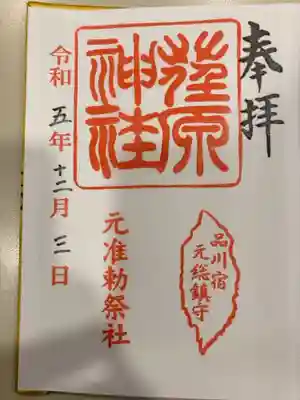 奉拝
荏原
神社
品川宿
元総鎮守
元准勅祭社
令和五年十二月三日